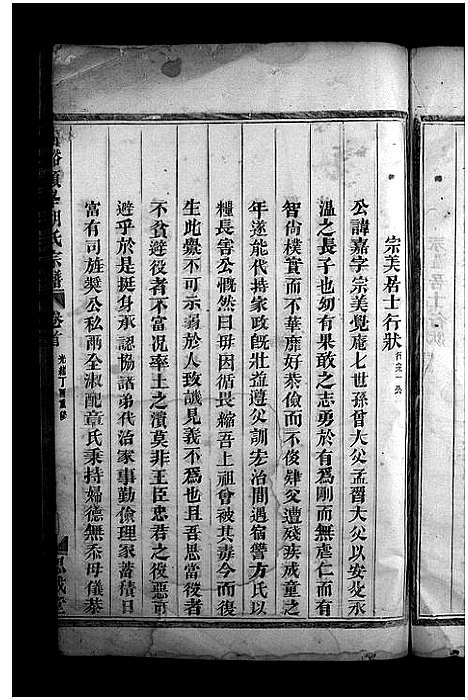 宗美居士行狀 行完一公
公諱嘉字宗美覺庵七世孫曾大父孟爾大父以安父永
溫之長子也幼有果敢之志勇於有為剛而無虐仁而有
智尚樸實而不華靡好恭儉而不俊肆父遭殘疾成童之
年遂能代持家政旣壯益遵父訓宏治間遇宿讐方氏以
糧長害公慨然曰毋因循畏縮吾上祖曾被其毒今而復
生此釁不可示弱於人致譏見義不為也且吾思當役者
不貧避役者不富况率土之濱莫非王臣忠君之役惡可
避乎於是挺身承認協諸弟代治家事勤儉理家蓄積日
富有司旌奬公私兩全淑配章氏秉持婦德無忝母儀恭
胡氏宗譜 卷首 光緒丁酉重修